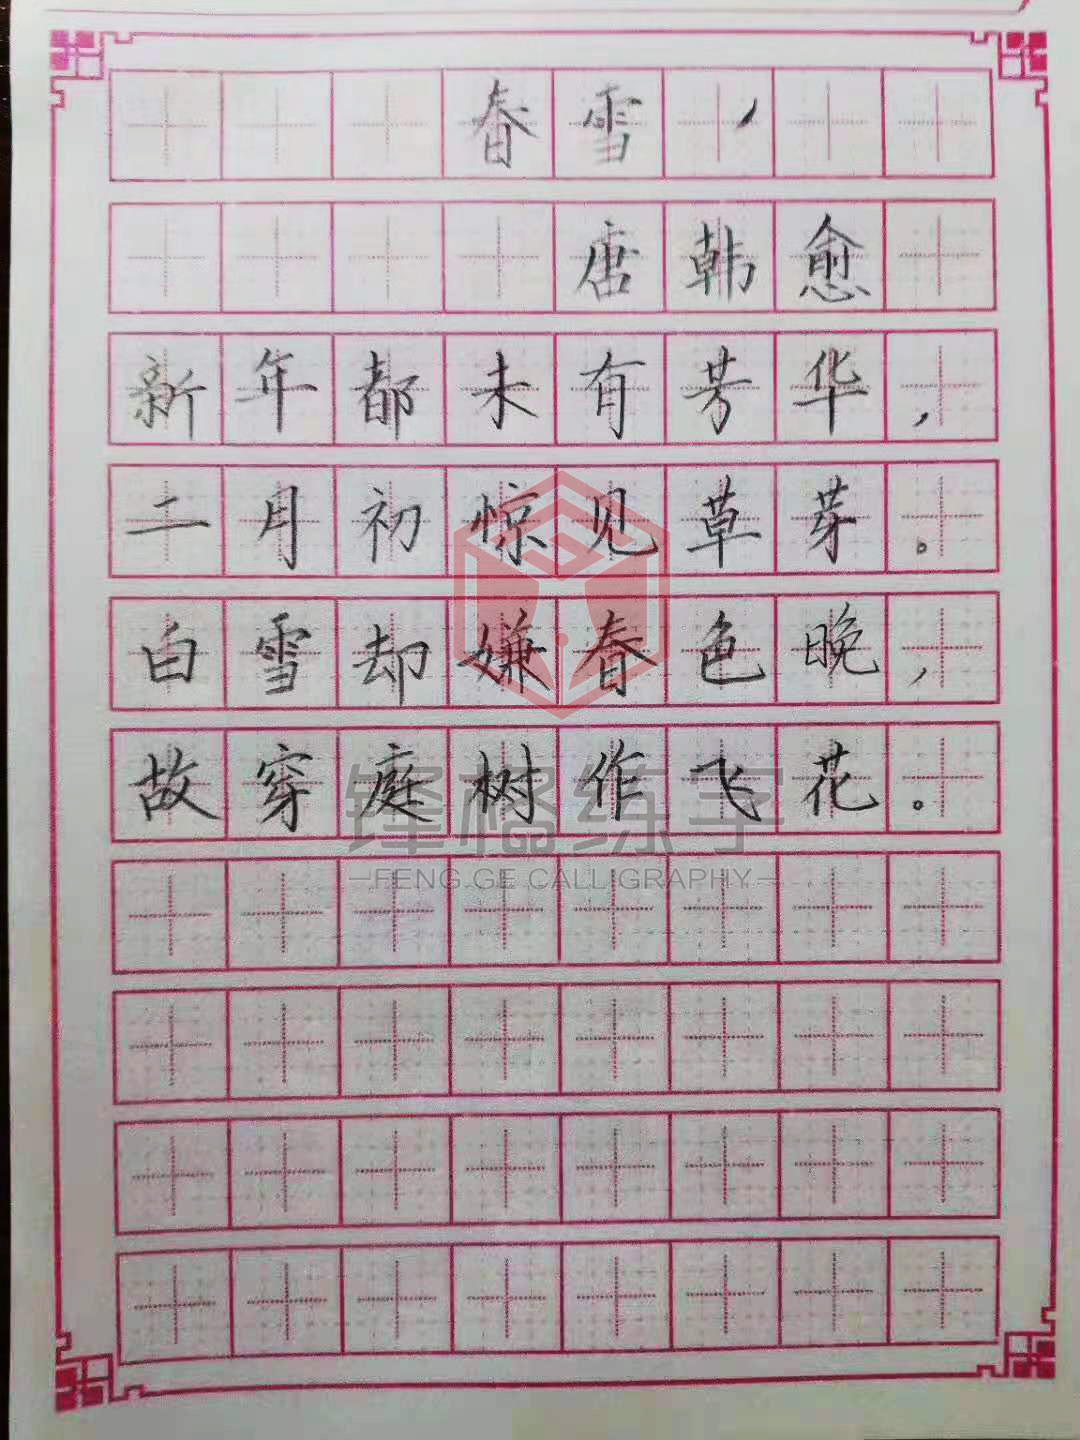 春雪
唐韩愈
新年都未有芳华，
二月初惊见草芽。
白雪却嫌春色晚，
故穿庭树作飞花。
锋格练字
FENG GE CALLIGRAPHY